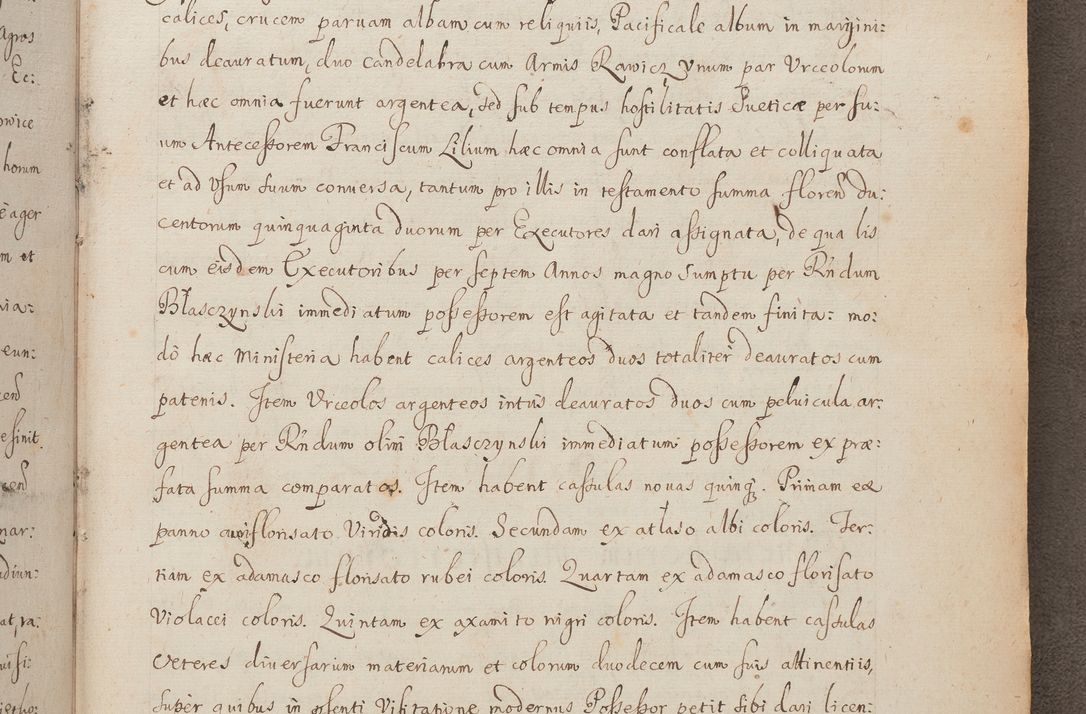 calices, crucem paruam albam cum reliquiis, Pacificale album in margini:
bus deauratum, duo candelabra cum Armis Rawicz Vnum par Vrceolorum
et hæc omnia fuerunt argentea, sed sub tempus hostilitatis Sueticæ per su:
um Antecessorem Franciscum Lilium hæc omnia sunt conflata et colliquata
et ad Vsum suum conuersa, tantum pro illis in testamento summa floren du:
centorum quinquaginta duorum per Executores dari assignata, de qua lis
cum eisdem Executoribus per septem Annos magno sumptu per Rndum
Błasczynski immediatum possessorem est agitata et tandem finita: mo:
dò hæc Ministeria habent calices argenteos duos totaliter deauratos cum
patenis. Item Vrceolos argenteos intus deauratos duos cum peluicula ar:
gentea per Rndum olim Błasczynski immediatum possessorem ex præ:
fata summa comparatos. Item habent cassulas nouas quinq. Primam ex
panno florisato Viridis coloris. Secundam ex atlaso albi coloris. Ter:
tiam ex adamasco florisato rubei coloris. Quartam ex adamasco florisato
Violacei coloris. Quintam ex axamito nigri coloris. Item habent cassulas
Veteres diuersarum materiarum et colorum duodecem cum suis attinentiis,
super quibus in psenti Visitatione modernus Possessor petit sibi dari licen:
Agros
Ec:
owice
horum
è ager
m et
nia:
eun:
cen
e sinit
cen
nar:
diun:
at, ra:
uisi: